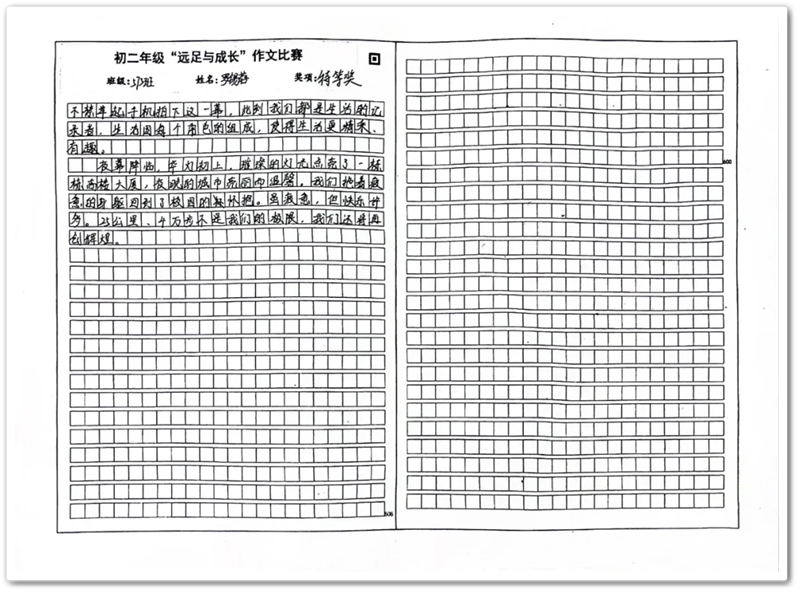 初二年级“远足与成长”作文比赛
班级: 班 姓名: 奖项:特等奖
不禁拿起手机拍下这一幕，此刻我们都是生活的记
录者，生活因每个角色的组成，使得生活更精采、
有趣。
夜幕降临，华灯初上，璀璨的灯光点亮了一栋
栋高楼大厦，夜晚的城市亮丽而温馨。我们拖着疲
惫的身躯回到了校园的怀抱。虽疲惫，但快乐许
多。25公里、4万步不是我们的极限，我们还将再
创辉煌。
600